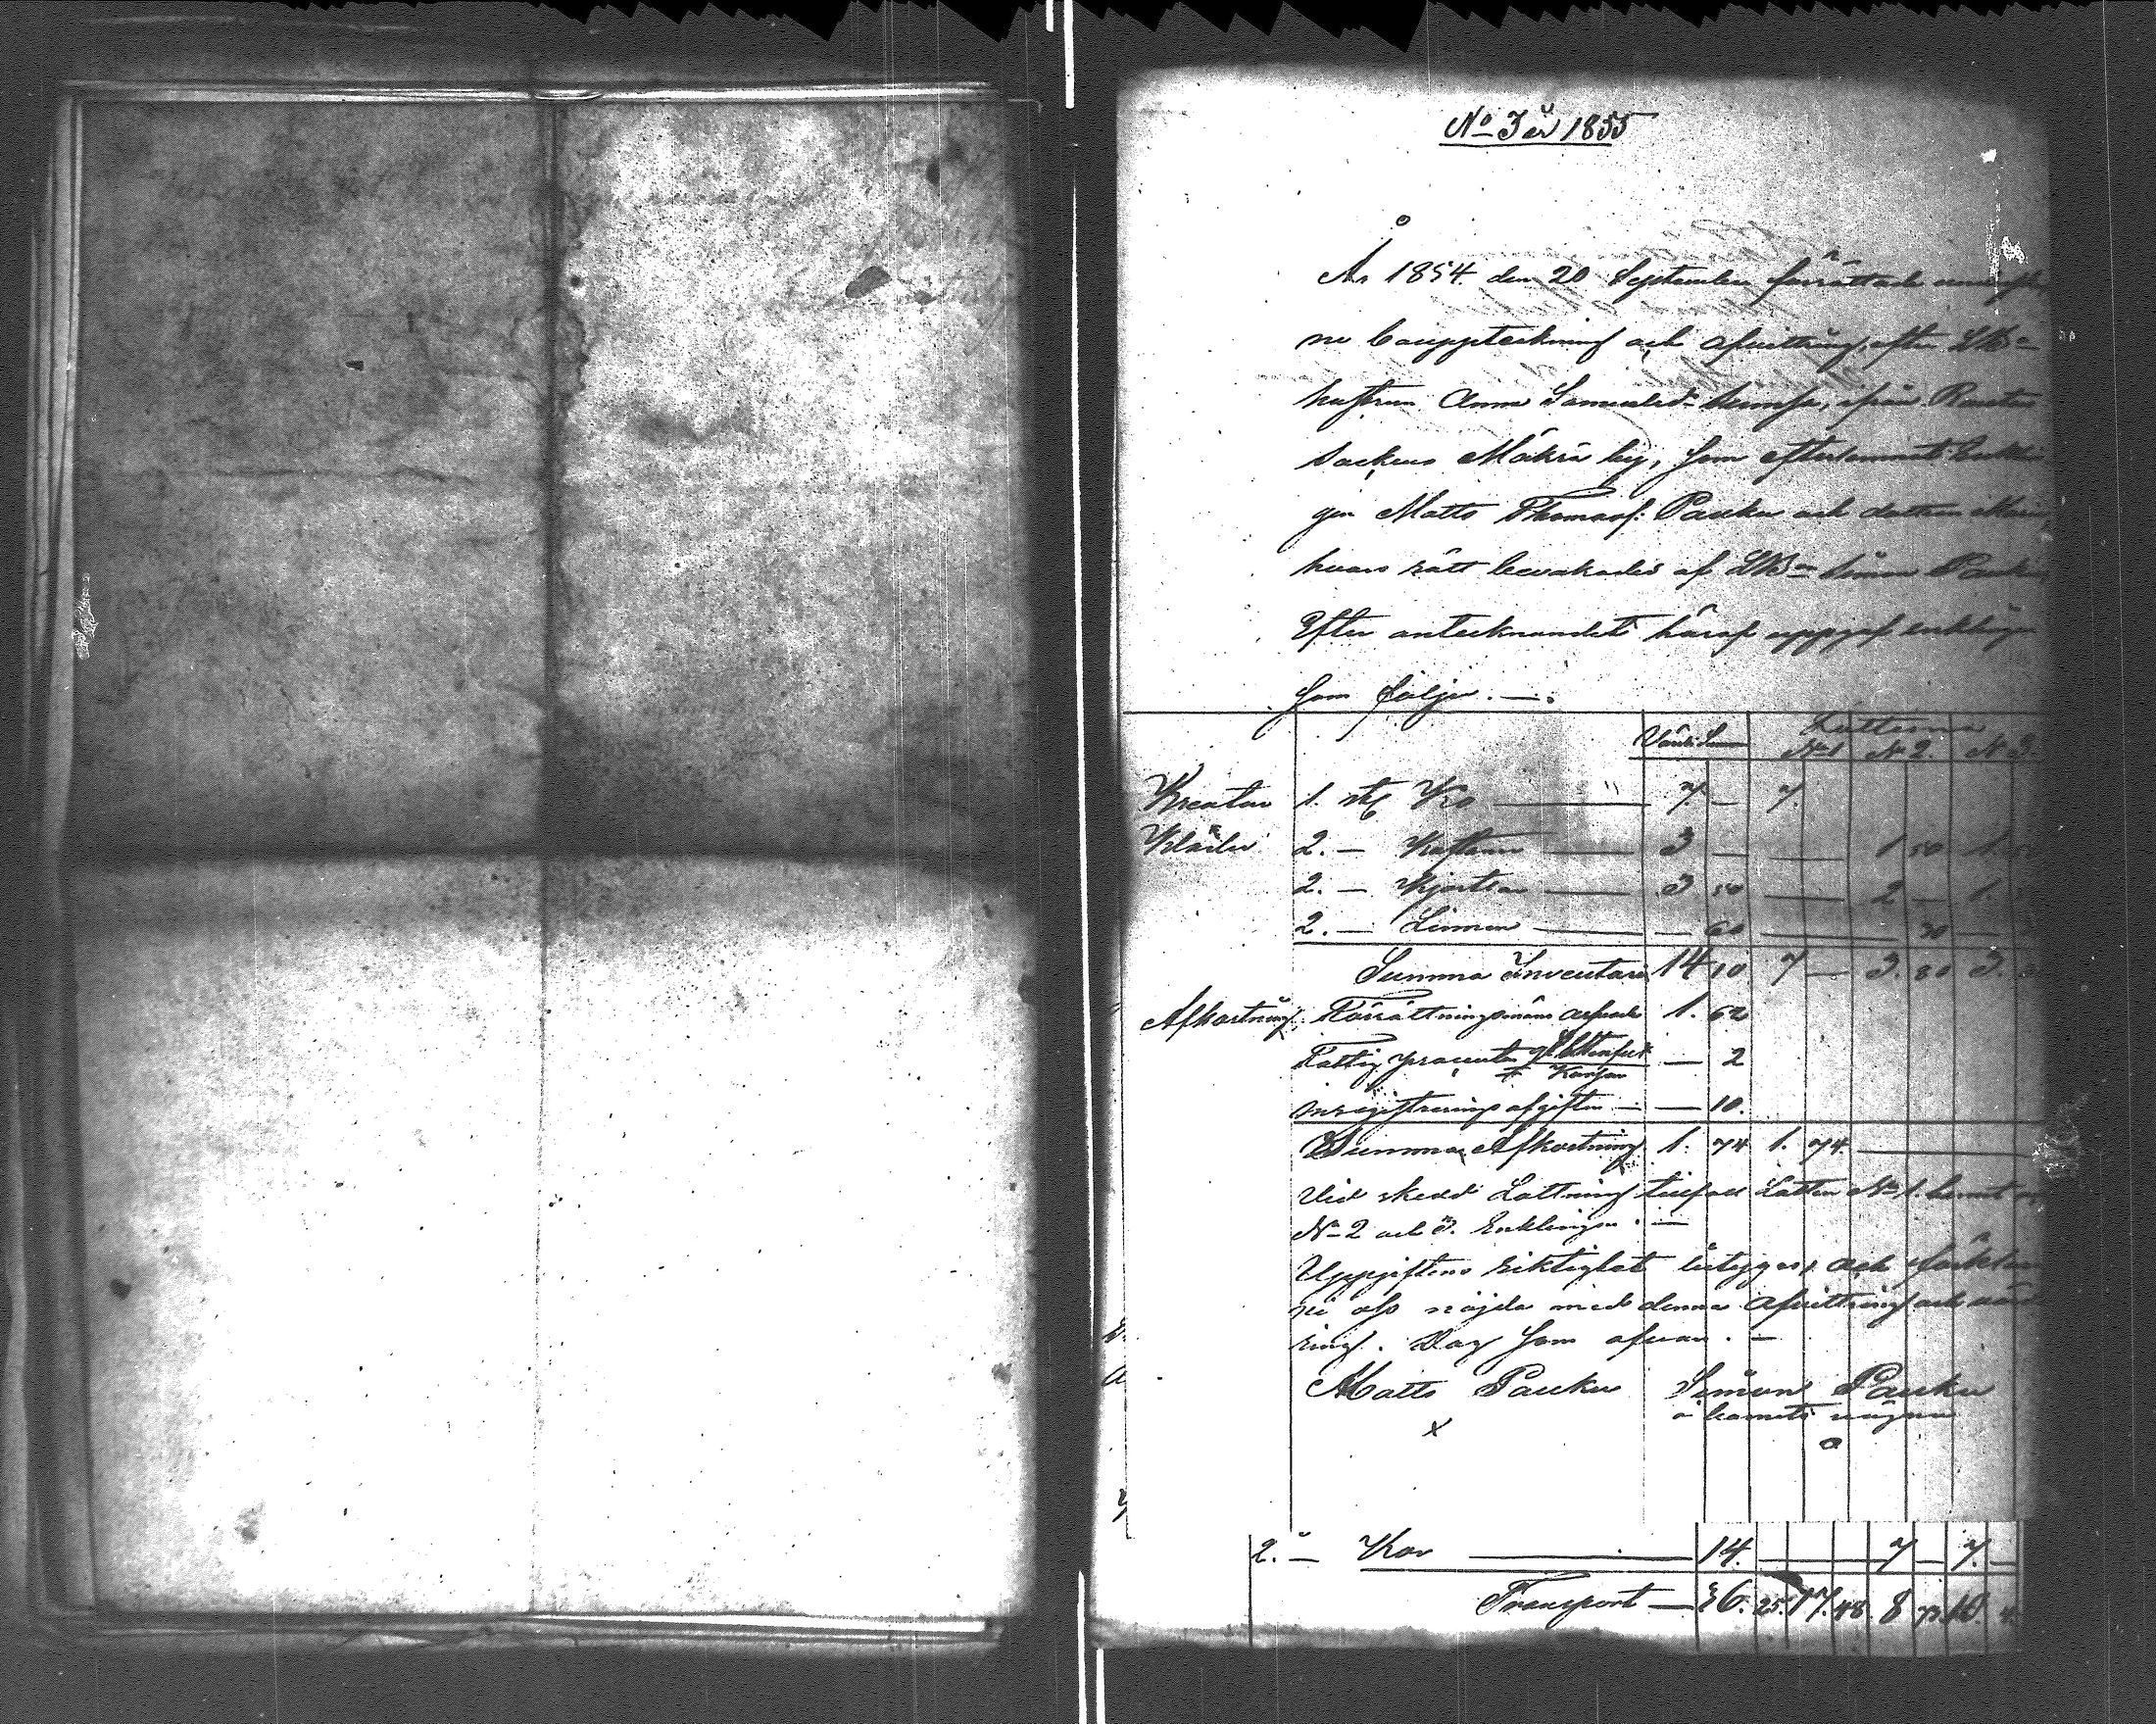 No 3 år 1855
År 1854 den 20 September förrättade
ne bouppteckning och afvittring, efter LBn
hustrun Anna Samuelsdr ifrån Rautu
Sockens Mäkrä by, som efterlemnat
gen Matts Thomass: Paukku och dottren Maria
hvars rätt bevakades af LBn Simon Paukku
Efter antecknandet häraf uppgaf enklingen
som följer. —.
Värde Lotterna
No 1 No 2. No 3.
Kreatur 1. st Ko — 7. — 7.
Kläder 2. — Kaftaner — 3 — — 1 50 1.
2. — Kjortlar — 3 50 — 2 — 1.
2. — Linnen — — 60 — 30 —
Summa Inventarii 14 10 7 — 3. 80 3.
Afkortning: Förrättningsmäns arfvode 1. 62
Fattig procenten — 2
inregistrerings afgiften — — 10.
Summa Afkortning 1. 74 1. 74. —
Vid skedd Lottning tillföll Lotten No 1. barnet
No 2 och 3. Enklingen. —
Uppgiftens riktighet betygges, och förklara
vi oss nöjda med denna afvittring och värde
ring. Dag som ofvan. —
Matts Paukku Simon Paukku
å barnets vägnar
x
2. — Kor — 14. — 7 — 7. —
Transport — 36. 25. 17. 48. 8 73 10.